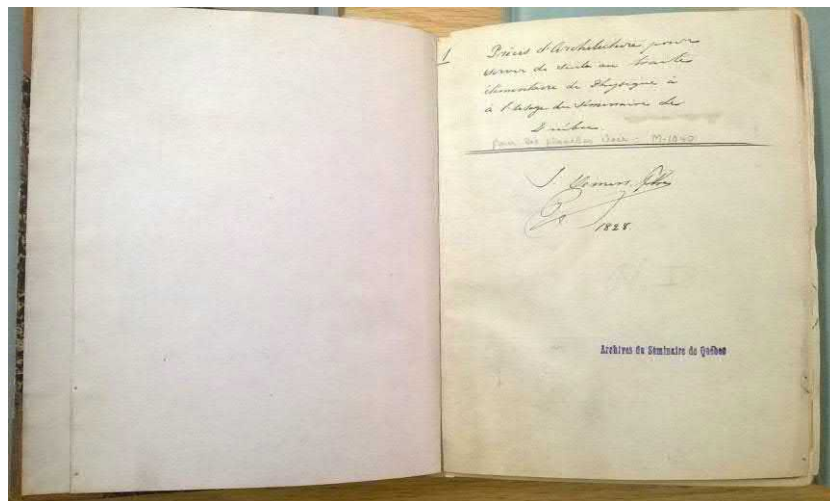 1
Précis d'Architecture pour
servir de suite au traité
élémentaire de Physique à
à l'usage du Séminaire de
Québec.
pour les planches voir M-1040
J.
1828.
Archives du Séminaire de Québec